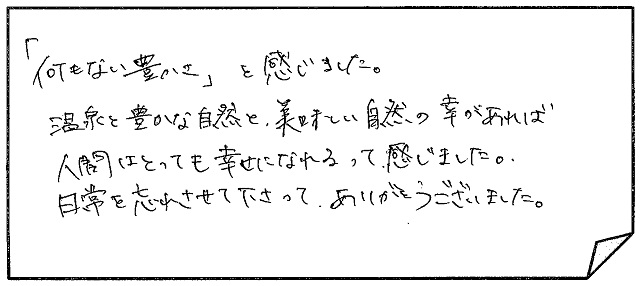 「何もない豊かさ」を感じました。
温泉と豊かな自然と、美味しい自然の幸があれば
人間はとっても幸せになれるって、感じました。
日常を忘れさせて下さって、ありがとうございました。